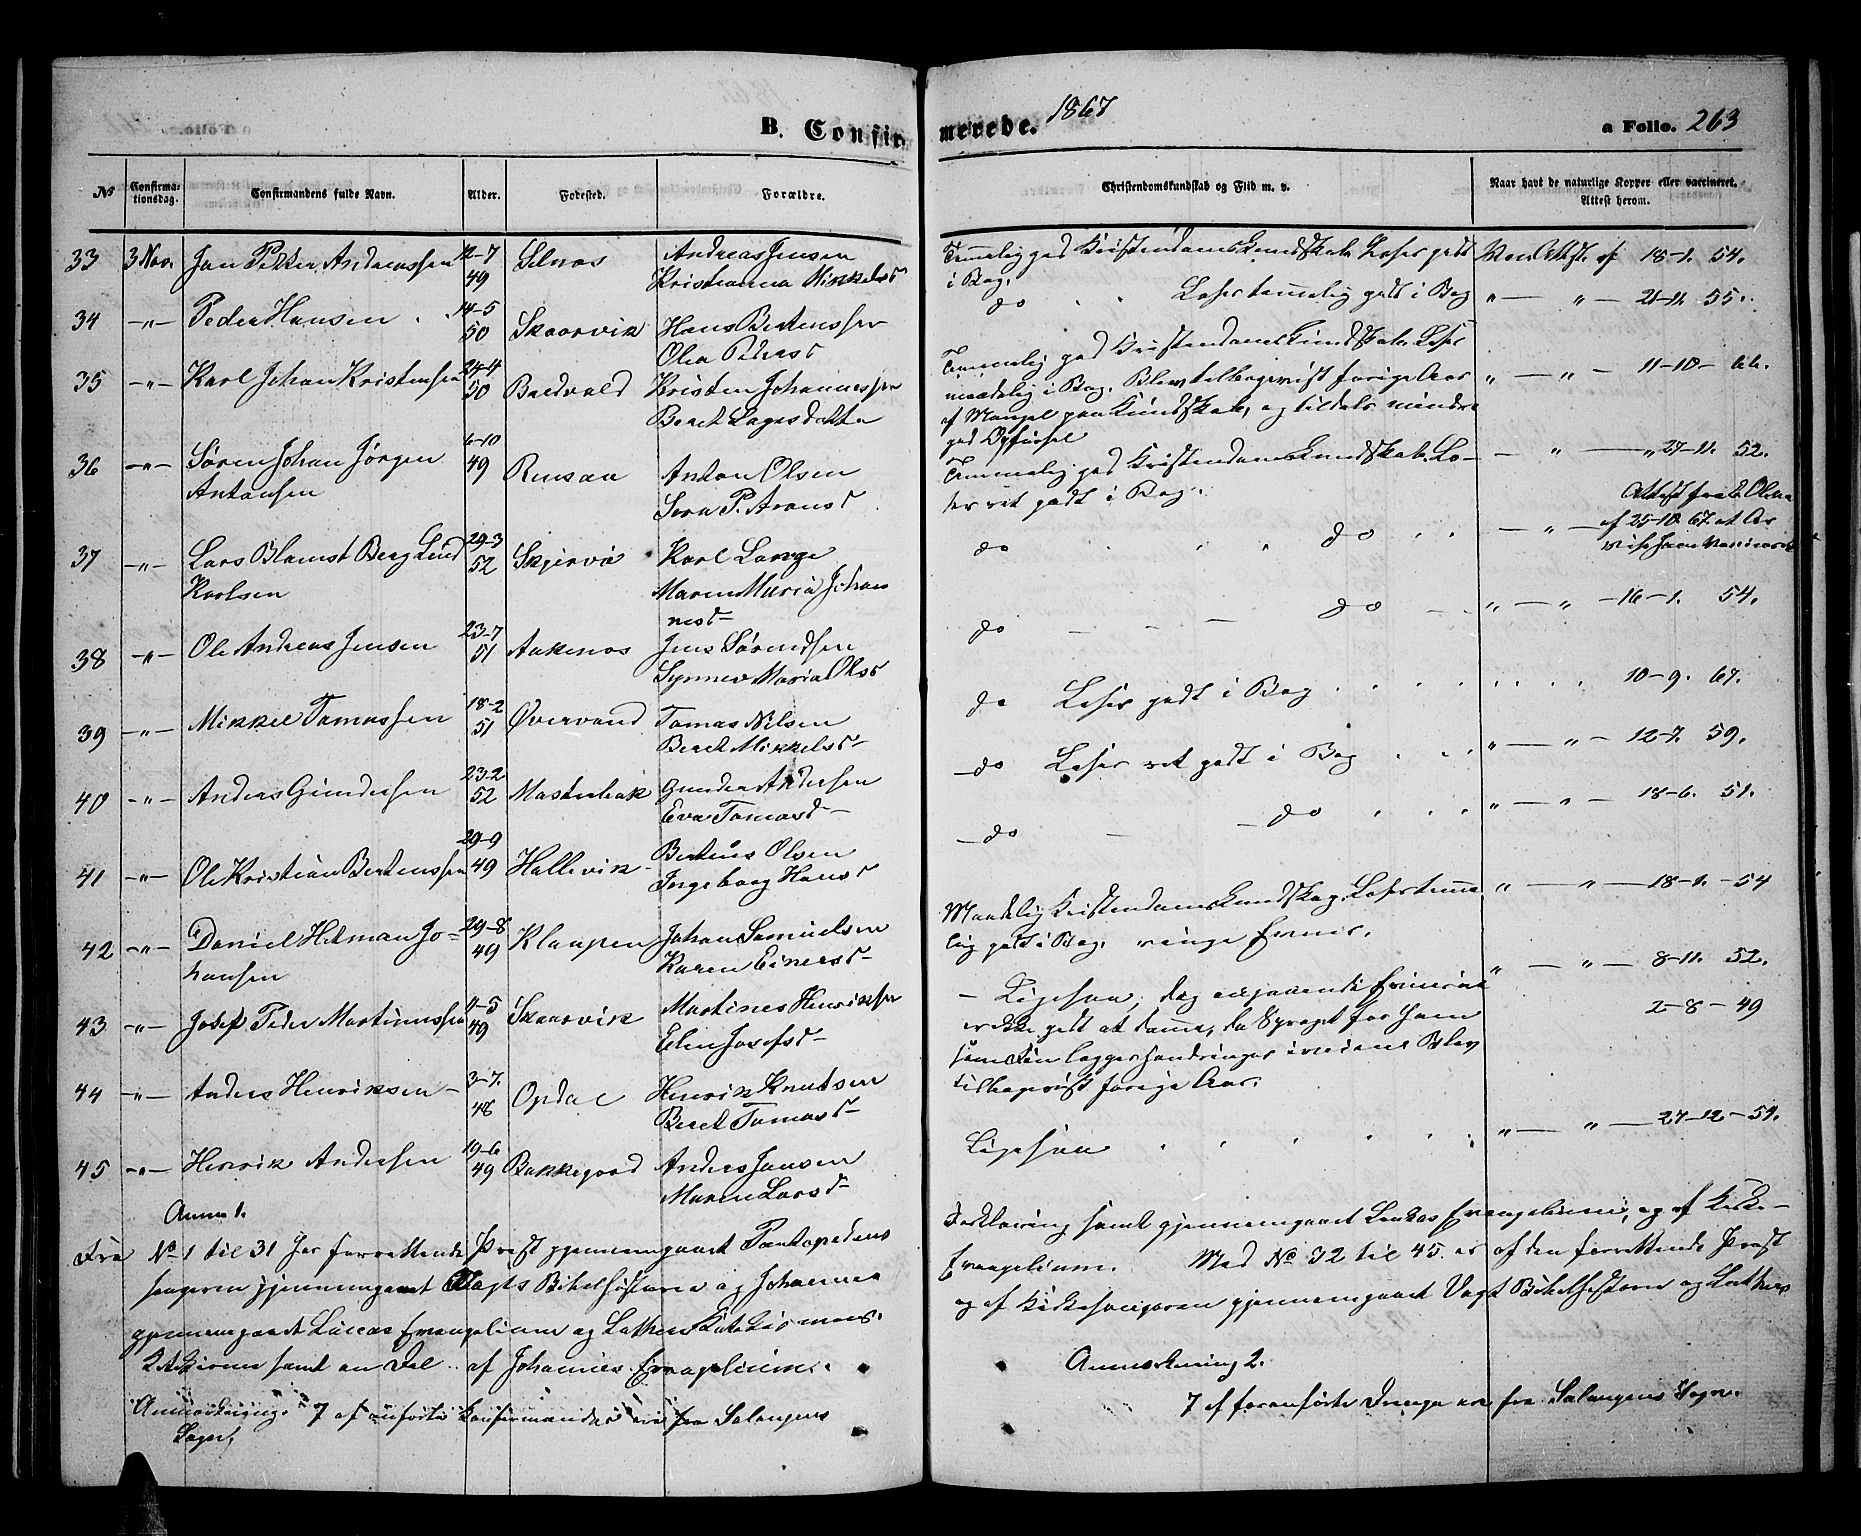 B. Confirmerede. 1867
a Folio. 263
No
Confirmationsdag.
Confirmandens fulde Navn.
Alder.
Fødested.
Forældre.
Christendomskundskab og Flid m. v.
Naar havt de naturlige Kopper eller vaccineret. Attest herom.
33 3 Nov. Jan Petter Andreassen 12-7 49 Elnæs Andreas Jensen
Kristianna Mikkelsd
Temmelig god Kristendomskundskab. Læser godt
i Bog. 18-1. 54.
34 -"- Peder Hansen 14-5 50 Skaarvik Hans Bertenssen
Olea Pedersd
do Læser temmelig godt i Bog " — " — 21-11. 55.
35 -"- Karl Johan Kristensen 24-4 50 Bredvold Kristen Johannessen
Beret Lagesdatter
Temmelig god Kristendomskundskab. Læser
maadelig i Bog. Blev tilbagevist forige Aar
af Mangel paa Kundskab, og tildels mindre
god Opførsel " — " — 11-10- 66.
36 -"- Søren Johan Jørgen
Antonsen 6-10 49 Rensaa Anton Olsen
Sera P. Aronsd
Temmelig god Kristendomskundskab. Læ-
ser ret godt i Bog. — " — " 27-11. 52.
37 -"- Lars Berg Lund
Karlsen 29-3 52 Skjervø Karl Lange
Maren Maria Johan
nesd
do do — " — Attest fra
af 25-10 67 at Ar
38 -"- Ole Andreas Jensen 23-7 51 Aakenæs Jens Sørendsen
Synnev Maria Olsd
do — — — do " — " — 16-1. 54.
39 -"- Mikkel Tomassen 18-2 51 Øvervand Tomas Nilsen
Beret Mikkelsd
do Læser godt i Bog 10-9. 67.
40 -"- Anders Gundersen 23-2 52 Masterbak Gunder Andersen
Eva Tomasd
do Læser ret godt i Bog " — " — 12-7. 59.
41 -"- Ole Kristian Bertenssen 29-9 49 Hallevik Bertėus Olsen
Ingeborg Hansd
do — — do " — " — 18-6. 51.
42 -"- Daniel Hilman Jo-
hansen 29-8 49 Klaapen Johan Samuelsen
Karen Einersd
Maadelig Kristendomskundskab. Læser temme
lig godt i Bog. ringe Evner. " — " — 18-1. - 54
43 -"- Josef Peder Martinussen 11-5 49 Skaarvik Martines Henriksen
Elen Josefsd
— Ligesaa, dog
ikke godt at dømme, da Sproget for ham
som Fin lægger hindringer i veien. Blev
tilbagevist forige Aar. " — " — 8-11. 52.
44 -"- Anders Henriksen 3-7. 48 Opdal Henrik Knutsen
Beret Tomasd
2-8 - 49
45 -"- Henrik Andersen 19-6 49 Bakkegaard Anders Jansen
Maren Larsd
Ligesaa " — " — 27-12 - 51.
Anm 1.
Fra No 1 til 31 har forrettende Prest gjennemgaaet Pontopedens
Forklaring samt gjennemgaaet Lukas Evangelium, og af Kirke-
sangeren gjennemgaaet Vogts Bibelhistorie og Johannes
Evangelium. Med No 32 til 45. er af den forrettende Prest
gjennemgaaet Luccas Evangelium og Luthers Katekismus.
og af Kirkesangeren gjennemgaaet Vogt Bibelhistorie og Luthers
Katekisme samt en Del af Johannes Evangelium.
Anmerkning 2.
Anmerkning. 7 af anførte Konfirmander ere fra Salangens
Sogn.
7 af foranførte Drenge ere fra Salangens Sogn.